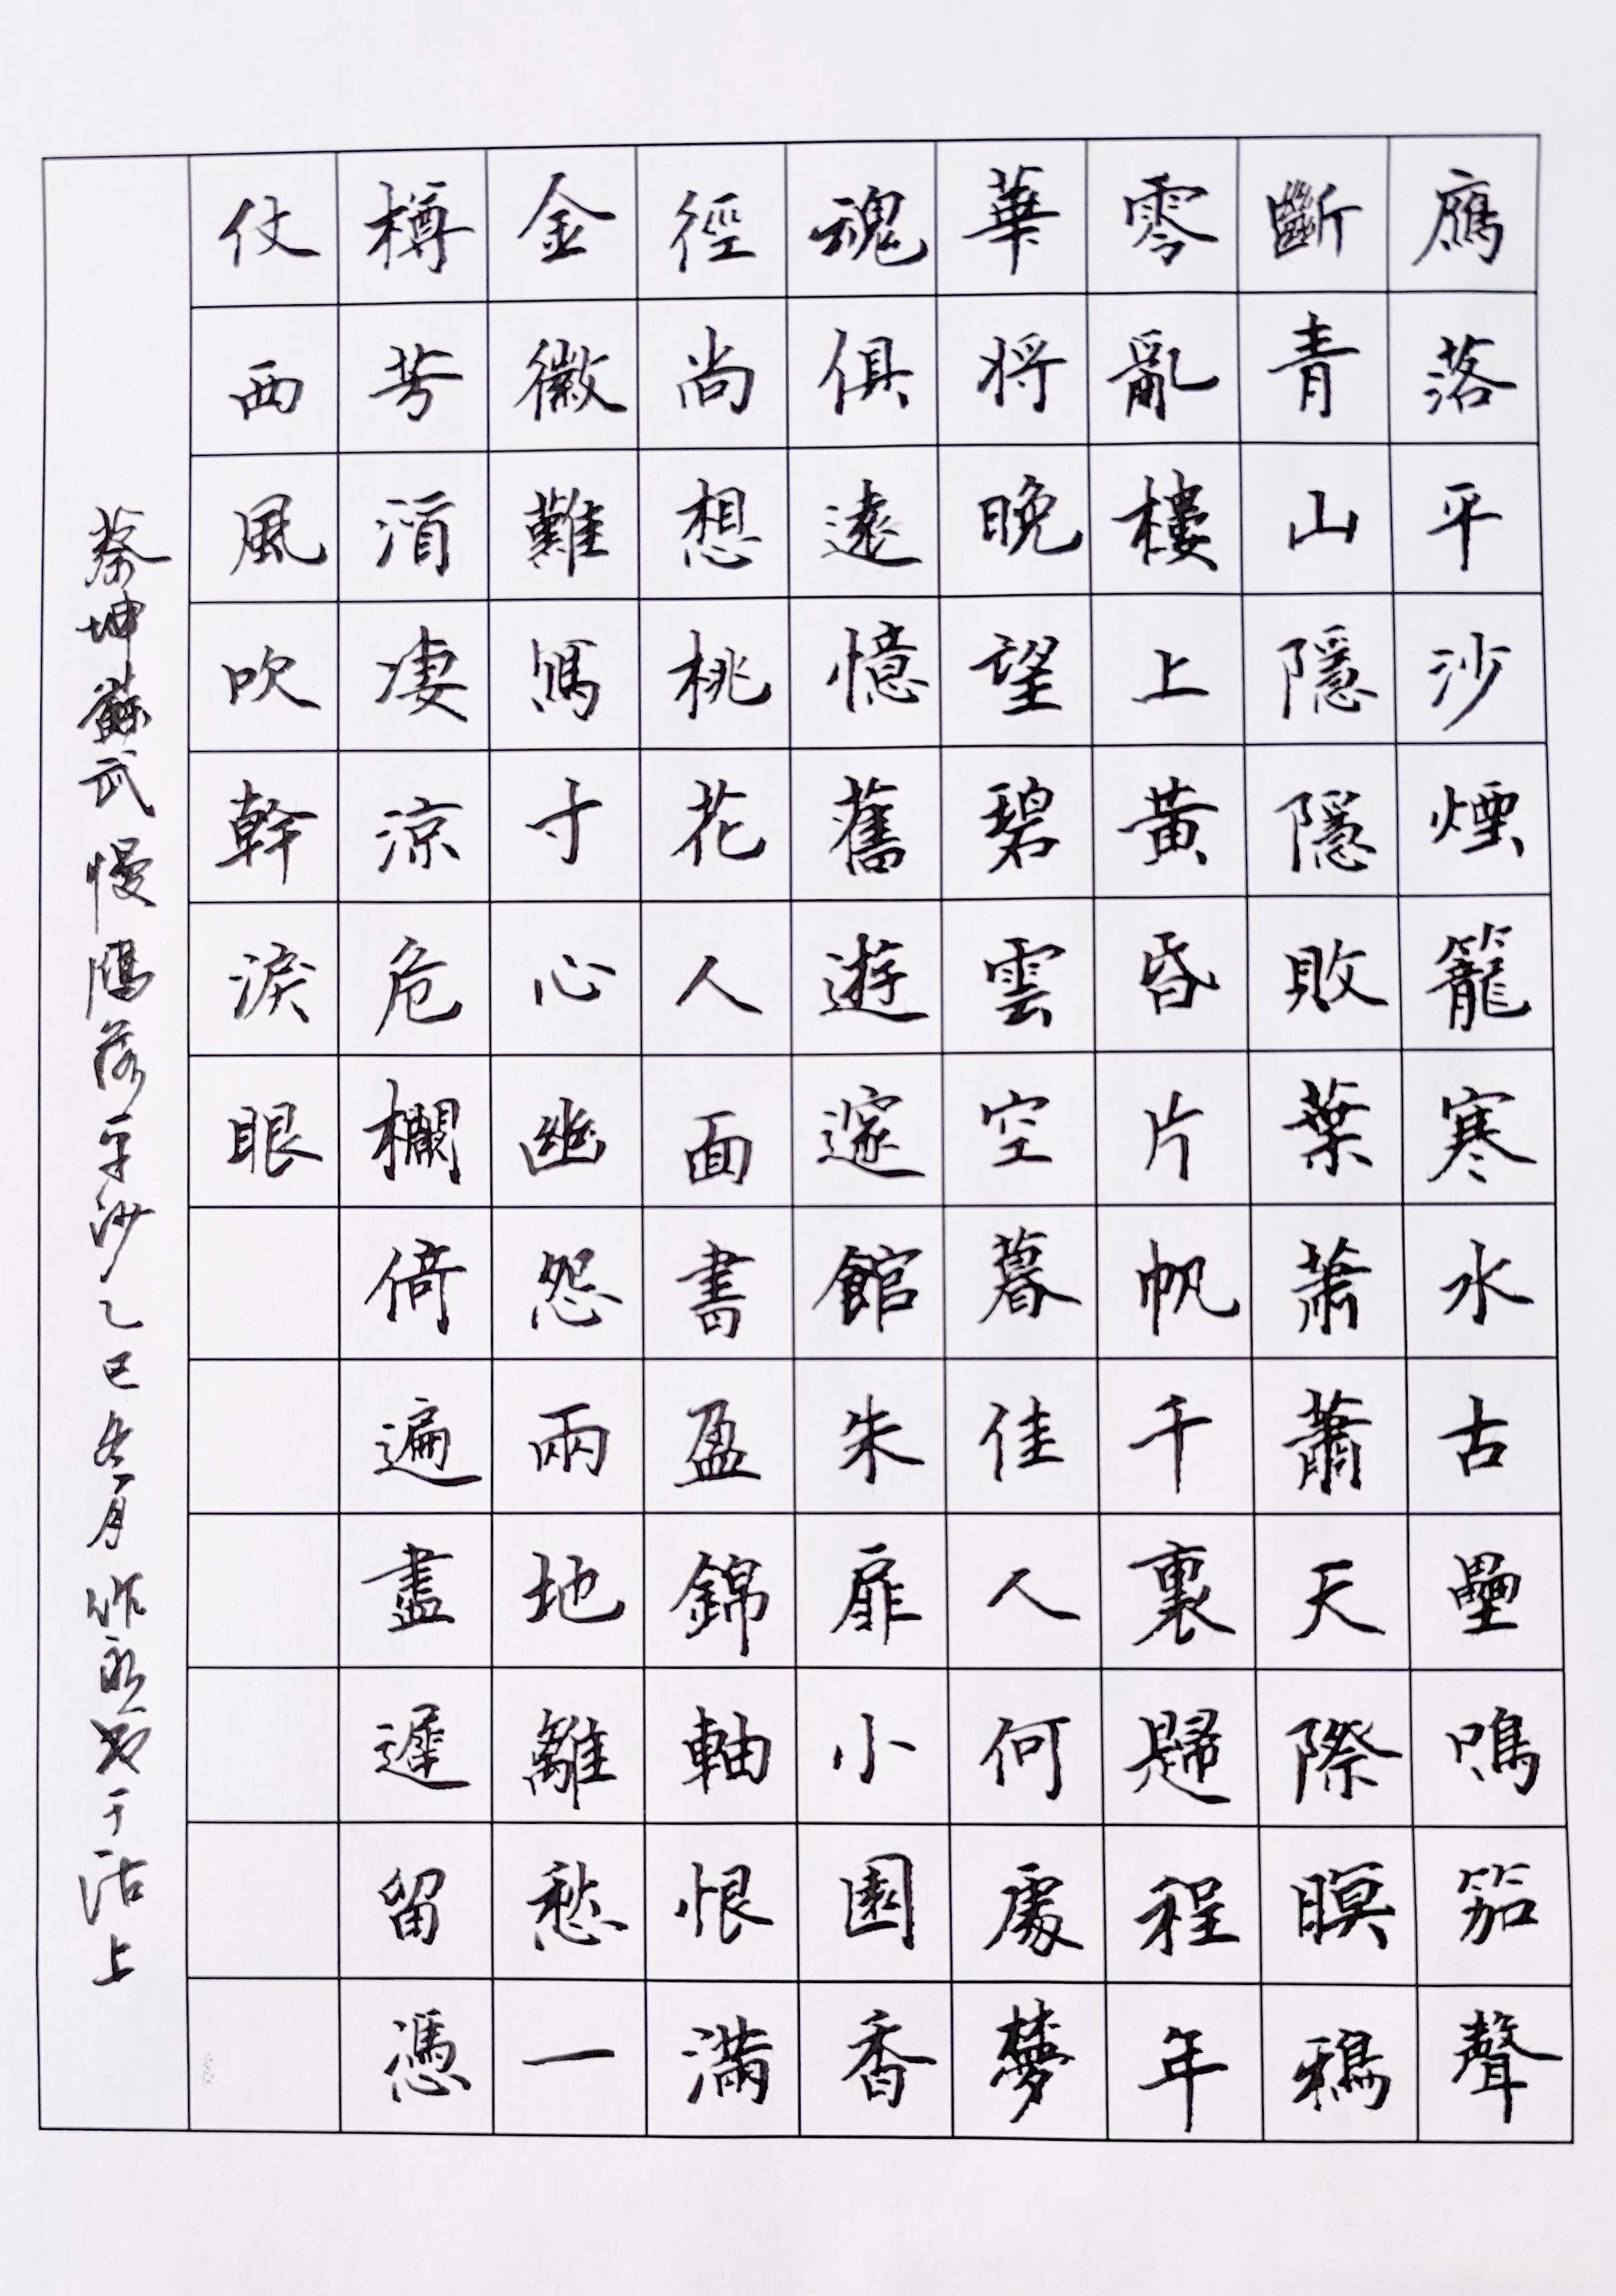 鴈落平沙煙籠寒水古壘鳴笳聲
斷青山隱隱敗葉蕭蕭天際暝鴉
零亂樓上黃昏片帆千裏歸程年
華將晚望碧雲空暮佳人何處夢
魂俱遠憶舊遊邃館朱扉小園香
徑尚想桃花人面書盈錦軸恨滿
金徽難寫寸心幽怨兩地離愁一
樽芳酒凄涼危欄倚遍盡遲留憑
仗西風吹幹淚眼
蔡坤蘇武慢鴈落平沙乙巳冬月作于沽上